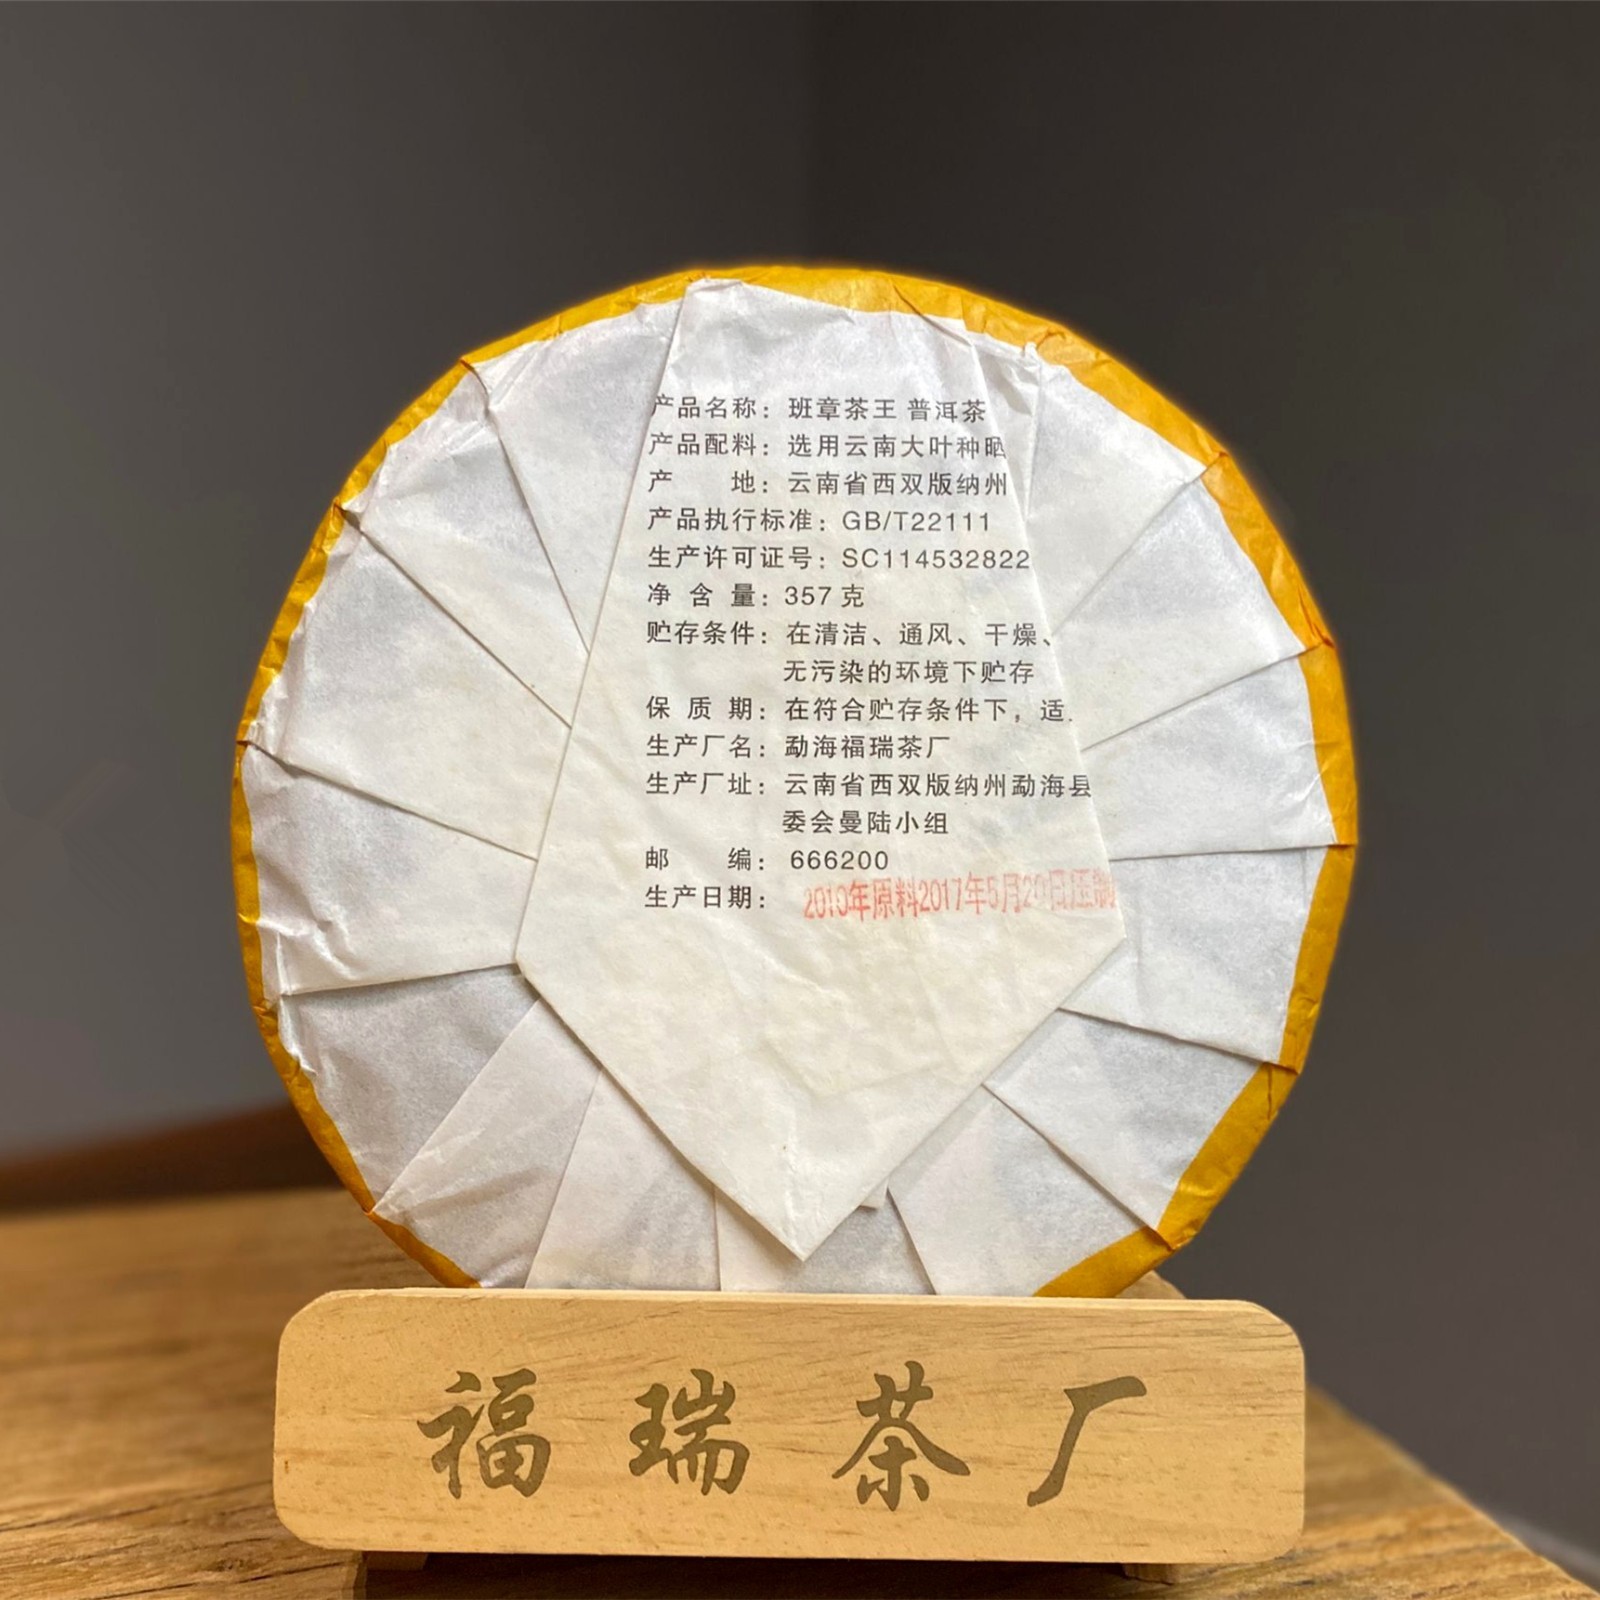 产品名称：班章茶王 普洱茶
产品配料：选用云南大叶种晒
产 地：云南省西双版纳州
产品执行标准：GB/T22111
生产许可证号：SC114532822
净 含 量：357 克
贮存条件：在清洁、通风、干燥、
无污染的环境下贮存
保 质 期：在符合贮存条件下，适
生产厂名：勐海福瑞茶厂
生产厂址：云南省西双版纳州勐海县
委会曼陆小组
邮 编：666200
生产日期：2010年原料2017年5月20日压制
福瑞茶厂